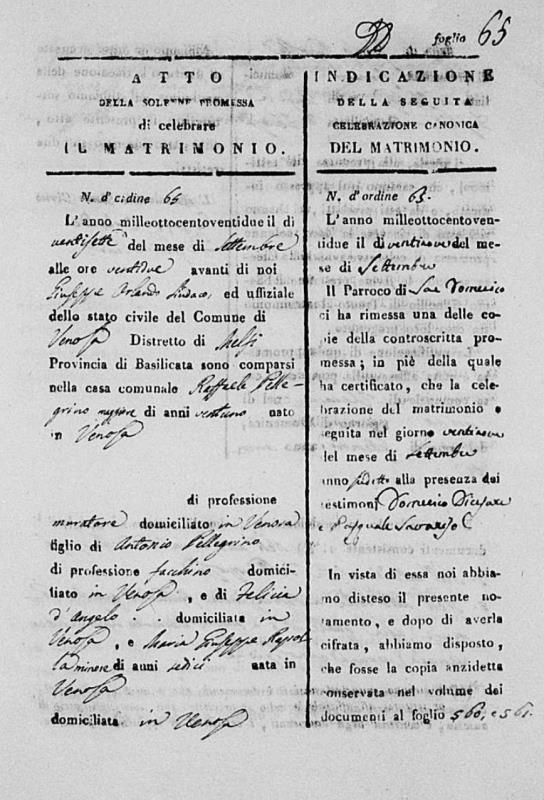 foglio 65
ATTO
DELLA SOLENNE PROMESSA
di celebrare
IL MATRIMONIO.
N. d'ordine 65
L'anno milleottocentoventidue il dì
ventisette del mese di Settembre
alle ore ventidue avanti di noi
Giuseppe Orlando Sindaco, ed uffiziale
dello stato civile del Comune di
Venosa Distretto di Melfi
Provincia di Basilicata sono comparsi
nella casa comunale Raffaele Pelle-
grino maggiore di anni ventuno nato
in Venosa
di professione
muratore domiciliato in Venosa
figlio di Antonio Pellegrino
di professione facchino domici-
liato in Venosa, e di Felicia
d'Angelo domiciliata in
Venosa, e Maria Giuseppa Rapol
la minore di anni sedici nata in
Venosa
domiciliata in Venosa
INDICAZIONE
DELLA SEGUITA
CELEBRAZIONE CANONICA
DEL MATRIMONIO.
N. d'ordine 63.
L'anno milleottocentoven-
tidue il dì ventinove del me-
se di Settembre
Il Parroco di San Domenico
ci ha rimessa una delle co-
pie della controscritta pro-
messa; in piè della quale
ha certificato, che la cele-
brazione del matrimonio è
seguita nel giorno ventinove
del mese di Settembre
anno suddetto alla presenza dei
testimonj Domenico Dicesare
e Pasquale Savarese
In vista di essa noi abbia-
mo disteso il presente no-
tamento, e dopo di averla
cifrata, abbiamo disposto,
che fosse la copia anzidetta
conservata nel volume dei
documenti al foglio 560, e 561.